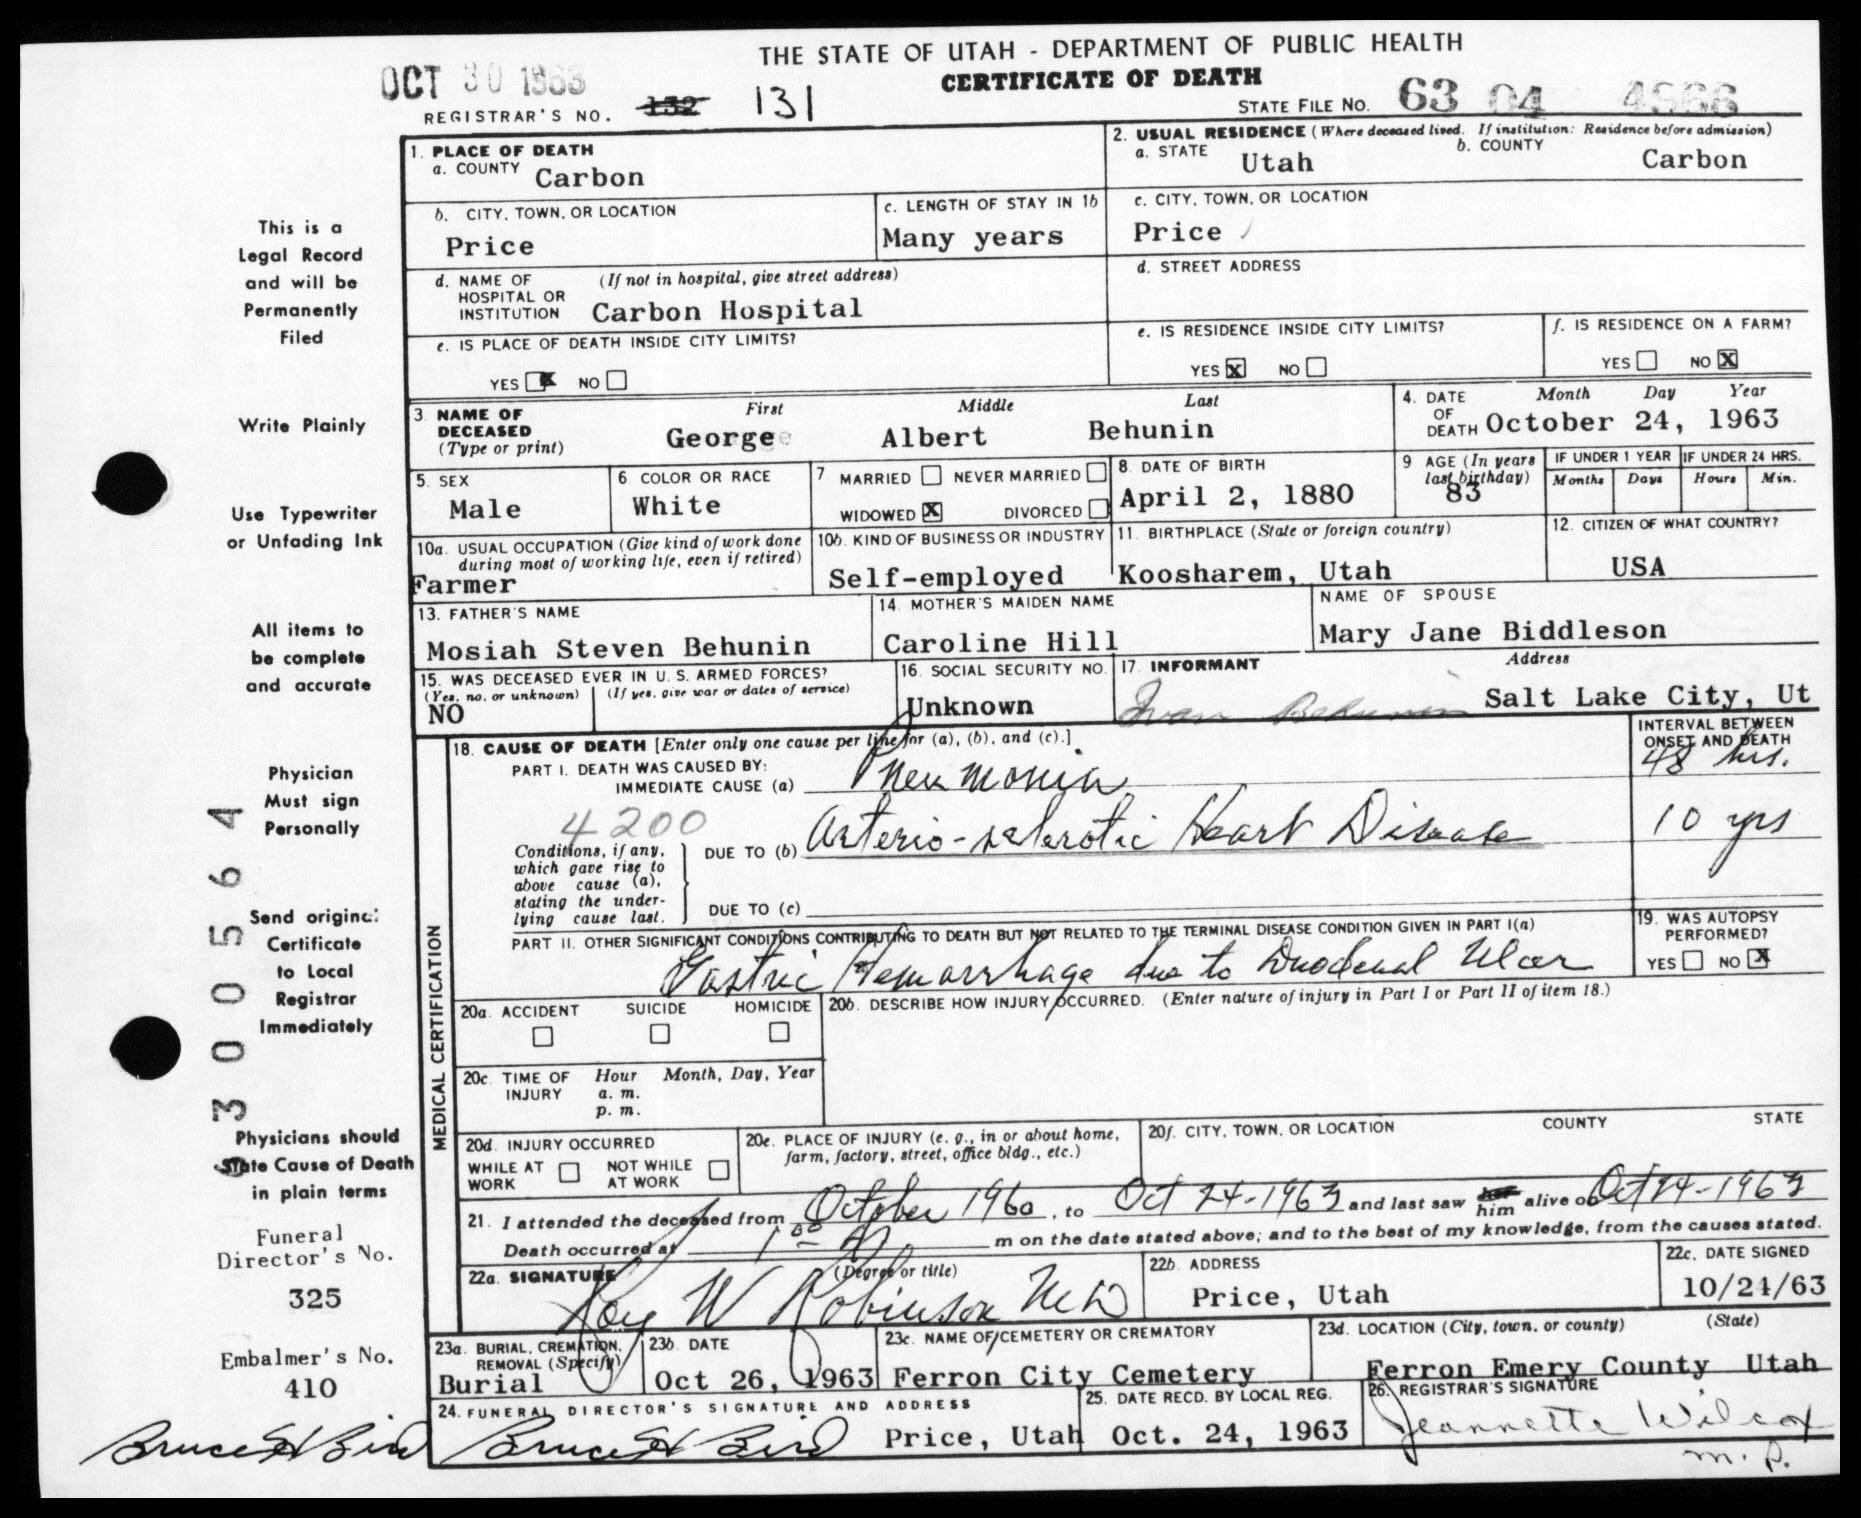 THE STATE OF UTAH - DEPARTMENT OF PUBLIC HEALTH
CERTIFICATE OF DEATH
OCT 30 1963
REGISTRAR'S NO. 132 131
STATE FILE NO. 63 04
1. PLACE OF DEATH
a. COUNTY Carbon
2. USUAL RESIDENCE (Where deceased lived. If institution: Residence before admission)
a. STATE Utah b. COUNTY Carbon
b. CITY, TOWN, OR LOCATION Price
c. LENGTH OF STAY IN 1b Many years
c. CITY, TOWN, OR LOCATION Price
d. NAME OF HOSPITAL OR INSTITUTION (If not in hospital, give street address) Carbon Hospital
d. STREET ADDRESS
e. IS PLACE OF DEATH INSIDE CITY LIMITS?
YES X NO
e. IS RESIDENCE INSIDE CITY LIMITS?
YES X NO
f. IS RESIDENCE ON A FARM?
YES NO X
3. NAME OF DECEASED (Type or print) First Middle Last
George Albert Behunin
4. DATE OF DEATH Month Day Year
October 24, 1963
5. SEX Male
6. COLOR OR RACE White
7. MARRIED NEVER MARRIED
WIDOWED X DIVORCED
8. DATE OF BIRTH April 2, 1880
9 AGE (In years last birthday) 83
IF UNDER 1 YEAR Months Days
IF UNDER 24 HRS. Hours Min.
10a. USUAL OCCUPATION (Give kind of work done during most of working life, even if retired)
Farmer
10b. KIND OF BUSINESS OR INDUSTRY Self-employed
11. BIRTHPLACE (State or foreign country) Koosharem, Utah
12. CITIZEN OF WHAT COUNTRY? USA
13. FATHER'S NAME Mosiah Steven Behunin
14. MOTHER'S MAIDEN NAME Caroline Hill
NAME OF SPOUSE Mary Jane Biddleson
15. WAS DECEASED EVER IN U. S. ARMED FORCES?
(Yes, no, or unknown) (If yes, give war or dates of service)
NO
16. SOCIAL SECURITY NO. Unknown
17. INFORMANT Address
Ivan Behunin Salt Lake City, Ut
MEDICAL CERTIFICATION
18. CAUSE OF DEATH [Enter only one cause per line for (a), (b), and (c).]
INTERVAL BETWEEN ONSET AND DEATH
PART I. DEATH WAS CAUSED BY:
IMMEDIATE CAUSE (a) Pneumonia 48 hrs.
4200
Conditions, if any, which gave rise to above cause (a), stating the underlying cause last.
DUE TO (b) Arterio-sclerotic Heart Disease 10 yrs
DUE TO (c)
PART II. OTHER SIGNIFICANT CONDITIONS CONTRIBUTING TO DEATH BUT NOT RELATED TO THE TERMINAL DISEASE CONDITION GIVEN IN PART I(a)
Gastric Hemorrhage due to Duodenal Ulcer
19. WAS AUTOPSY PERFORMED?
YES NO X
20a. ACCIDENT SUICIDE HOMICIDE
20b. DESCRIBE HOW INJURY OCCURRED. (Enter nature of injury in Part I or Part II of item 18.)
20c. TIME OF INJURY Hour Month, Day, Year
a. m.
p. m.
20d. INJURY OCCURRED
WHILE AT WORK NOT WHILE AT WORK
20e. PLACE OF INJURY (e. g., in or about home, farm, factory, street, office bldg., etc.)
20f. CITY, TOWN, OR LOCATION COUNTY STATE
21. I attended the deceased from October 1960, to Oct 24-1963 and last saw her him alive on Oct 24-1963
Death occurred at 1 00 A m on the date stated above; and to the best of my knowledge, from the causes stated.
22a. SIGNATURE (Degree or title)
Roy W Robinson MD
22b. ADDRESS Price, Utah
22c. DATE SIGNED 10/24/63
23a. BURIAL, CREMATION, REMOVAL (Specify) Burial
23b. DATE Oct 26, 1963
23c. NAME OF CEMETERY OR CREMATORY Ferron City Cemetery
23d. LOCATION (City, town, or county) (State)
Ferron Emery County Utah
24. FUNERAL DIRECTOR'S SIGNATURE AND ADDRESS
Bruce H Bird Price, Utah
25. DATE RECD. BY LOCAL REG. Oct. 24, 1963
26. REGISTRAR'S SIGNATURE
Jeannette Wilcox
m. p.
This is a
Legal Record
and will be
Permanently
Filed
Write Plainly
Use Typewriter
or Unfading Ink
All items to
be complete
and accurate
Physician
Must sign
Personally
Send original
Certificate
to Local
Registrar
Immediately
Physicians should
State Cause of Death
in plain terms
Funeral
Director's No.
325
Embalmer's No.
410
Bruce H Bird